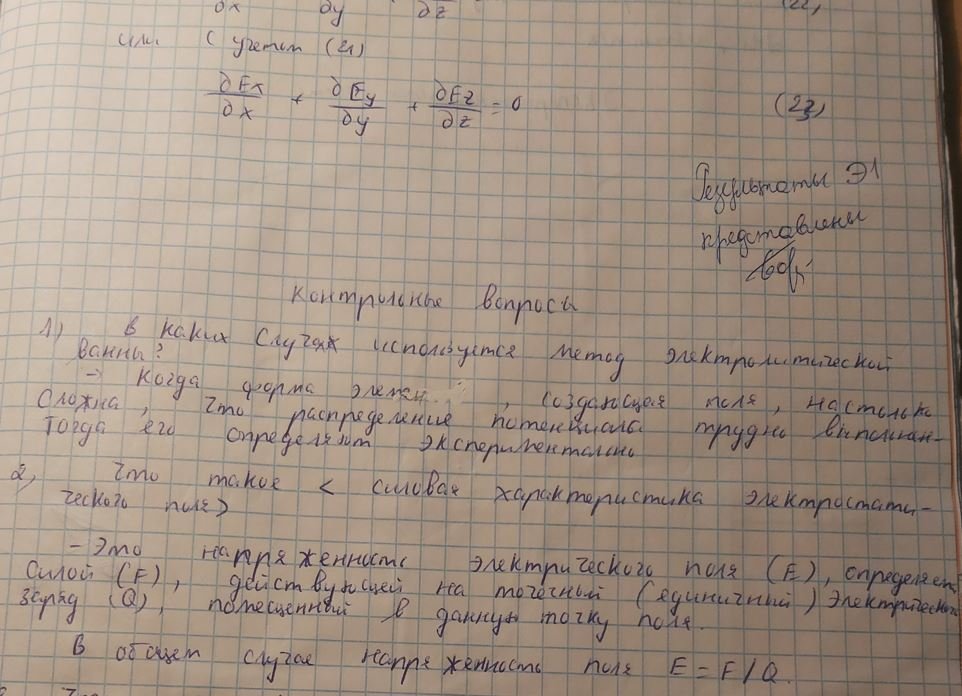 ∂x ∂y ∂z (22)
или с учетом (21)
∂Ex/∂x + ∂Ey/∂y + ∂Ez/∂z = 0 (23)
Результаты Э1
представлены
Контрольные вопросы
1) В каких случаях используется метод электролитической
ванны?
→ Когда форма элемен , создающая поля, настолько
сложна, что распределение потенциала трудно выполнан-
Тогда его определяют экспериментально
2, Что такое < силовая характеристика электростати-
ческого поля>
- Это напряженность электрического поля (E), определяет
силой (F), действующей на точечный (единичный) электрического
заряд (Q), помещенный в данную точку поля.
В общем случае напряженность поля E = F/Q.